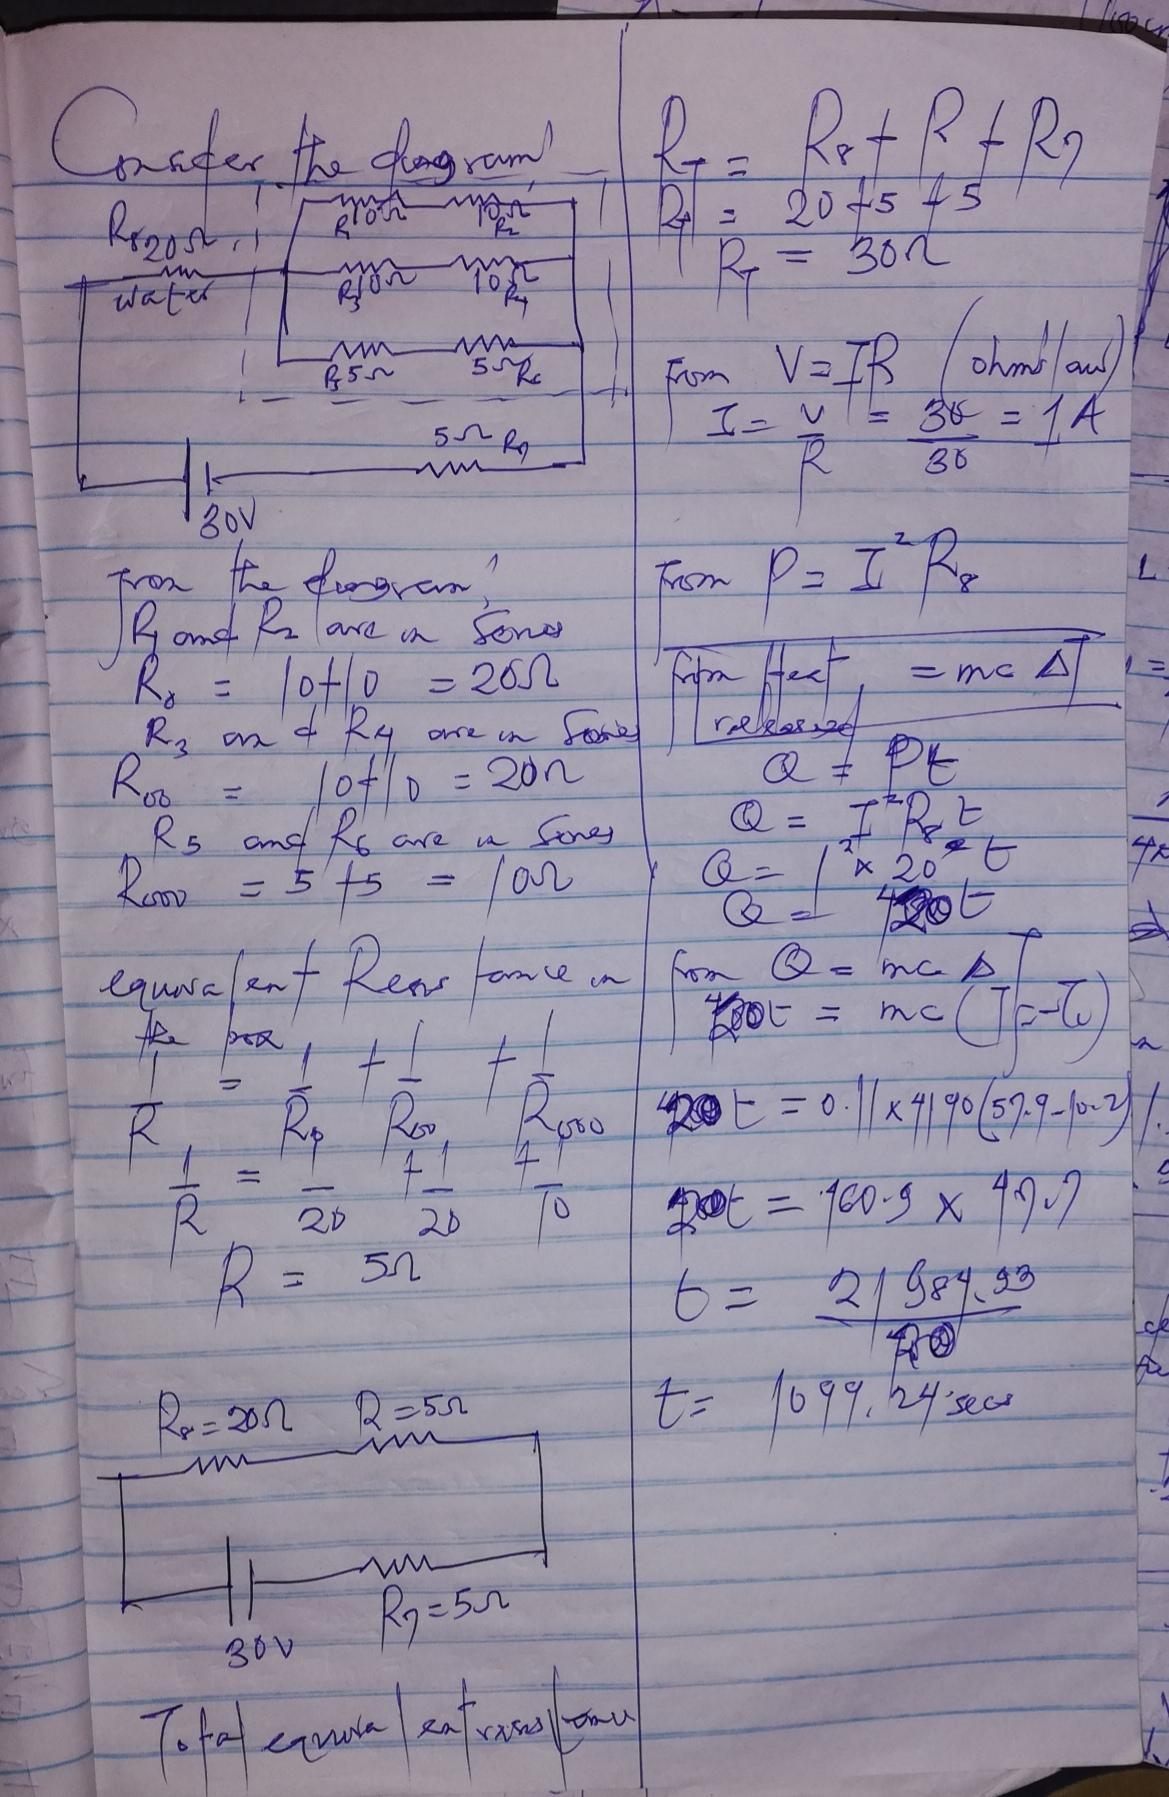 Consider the diagram,
R8 20Ω
water
R1 10Ω 10Ω R2
R3 10Ω 10Ω R4
R5 5Ω 5Ω R6
5Ω R7
30V
from the diagram,
R1 and R2 are in series
R0 = 10+10 = 20Ω
R3 and R4 are in series
R00 = 10+10 = 20Ω
R5 and R6 are in series
R000 = 5+5 = 10Ω
equivalent Resistance in
the box
1/R = 1/R0 + 1/R00 + 1/R000
1/R = 1/20 + 1/20 + 1/10
R = 5Ω
R8=20Ω R=5Ω
R7=5Ω
30V
Total equivalent resistance
RT = R8 + R + R7
RT = 20+5+5
RT = 30Ω
from V=IR (ohms law)
I = V/R = 30/30 = 1A
from P = I²R8
from Heat released = mcΔT
Q = Pt
Q = I²R8t
Q = 1² × 20 t
Q = 20t
from Q = mcΔT
20t = mc(Tf-Ti)
20t = 0.11×4190(57.9-10.2)
20t = 460.9 × 47.7
t = 21984.93/20
t = 1099.24 secs